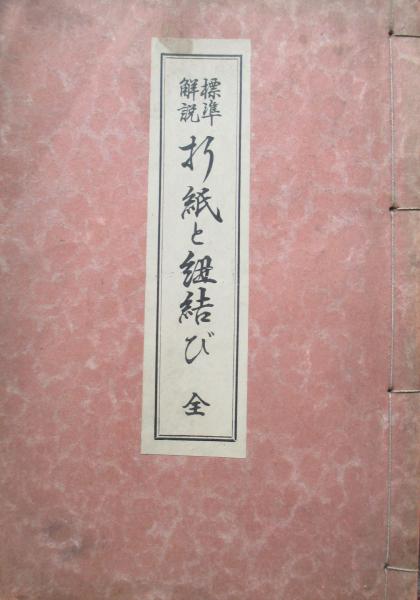 標準
解説
折紙と紐結び 全